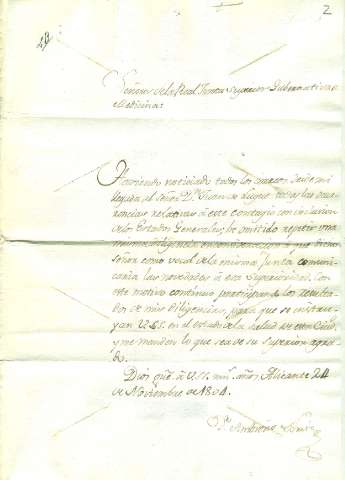 2
Señores de la Real Junta Superior Gubernativa de
Medicina.
Haviendo noticiado todos los correos desde mi
llegada al señor Dn. Juan de todas las ocur-
rencias relativas a este contagio con inclusion
de los Estados Generales, he omitido repetir una
misma diligencia en consideracion a que dicho
señor como vocal de la misma Junta comuni-
caria las novedades a esa Superioridad. Con
este motivo continuo participando los resulta-
dos de mis diligencias, para que se instru-
yan V.S.S. en el estado de la salud de esta Ciudad,
y me manden lo que sea de su superior agra-
do.
Dios gue. a V.S.S. ms. años Alicante 24
de Noviembre de 1804.